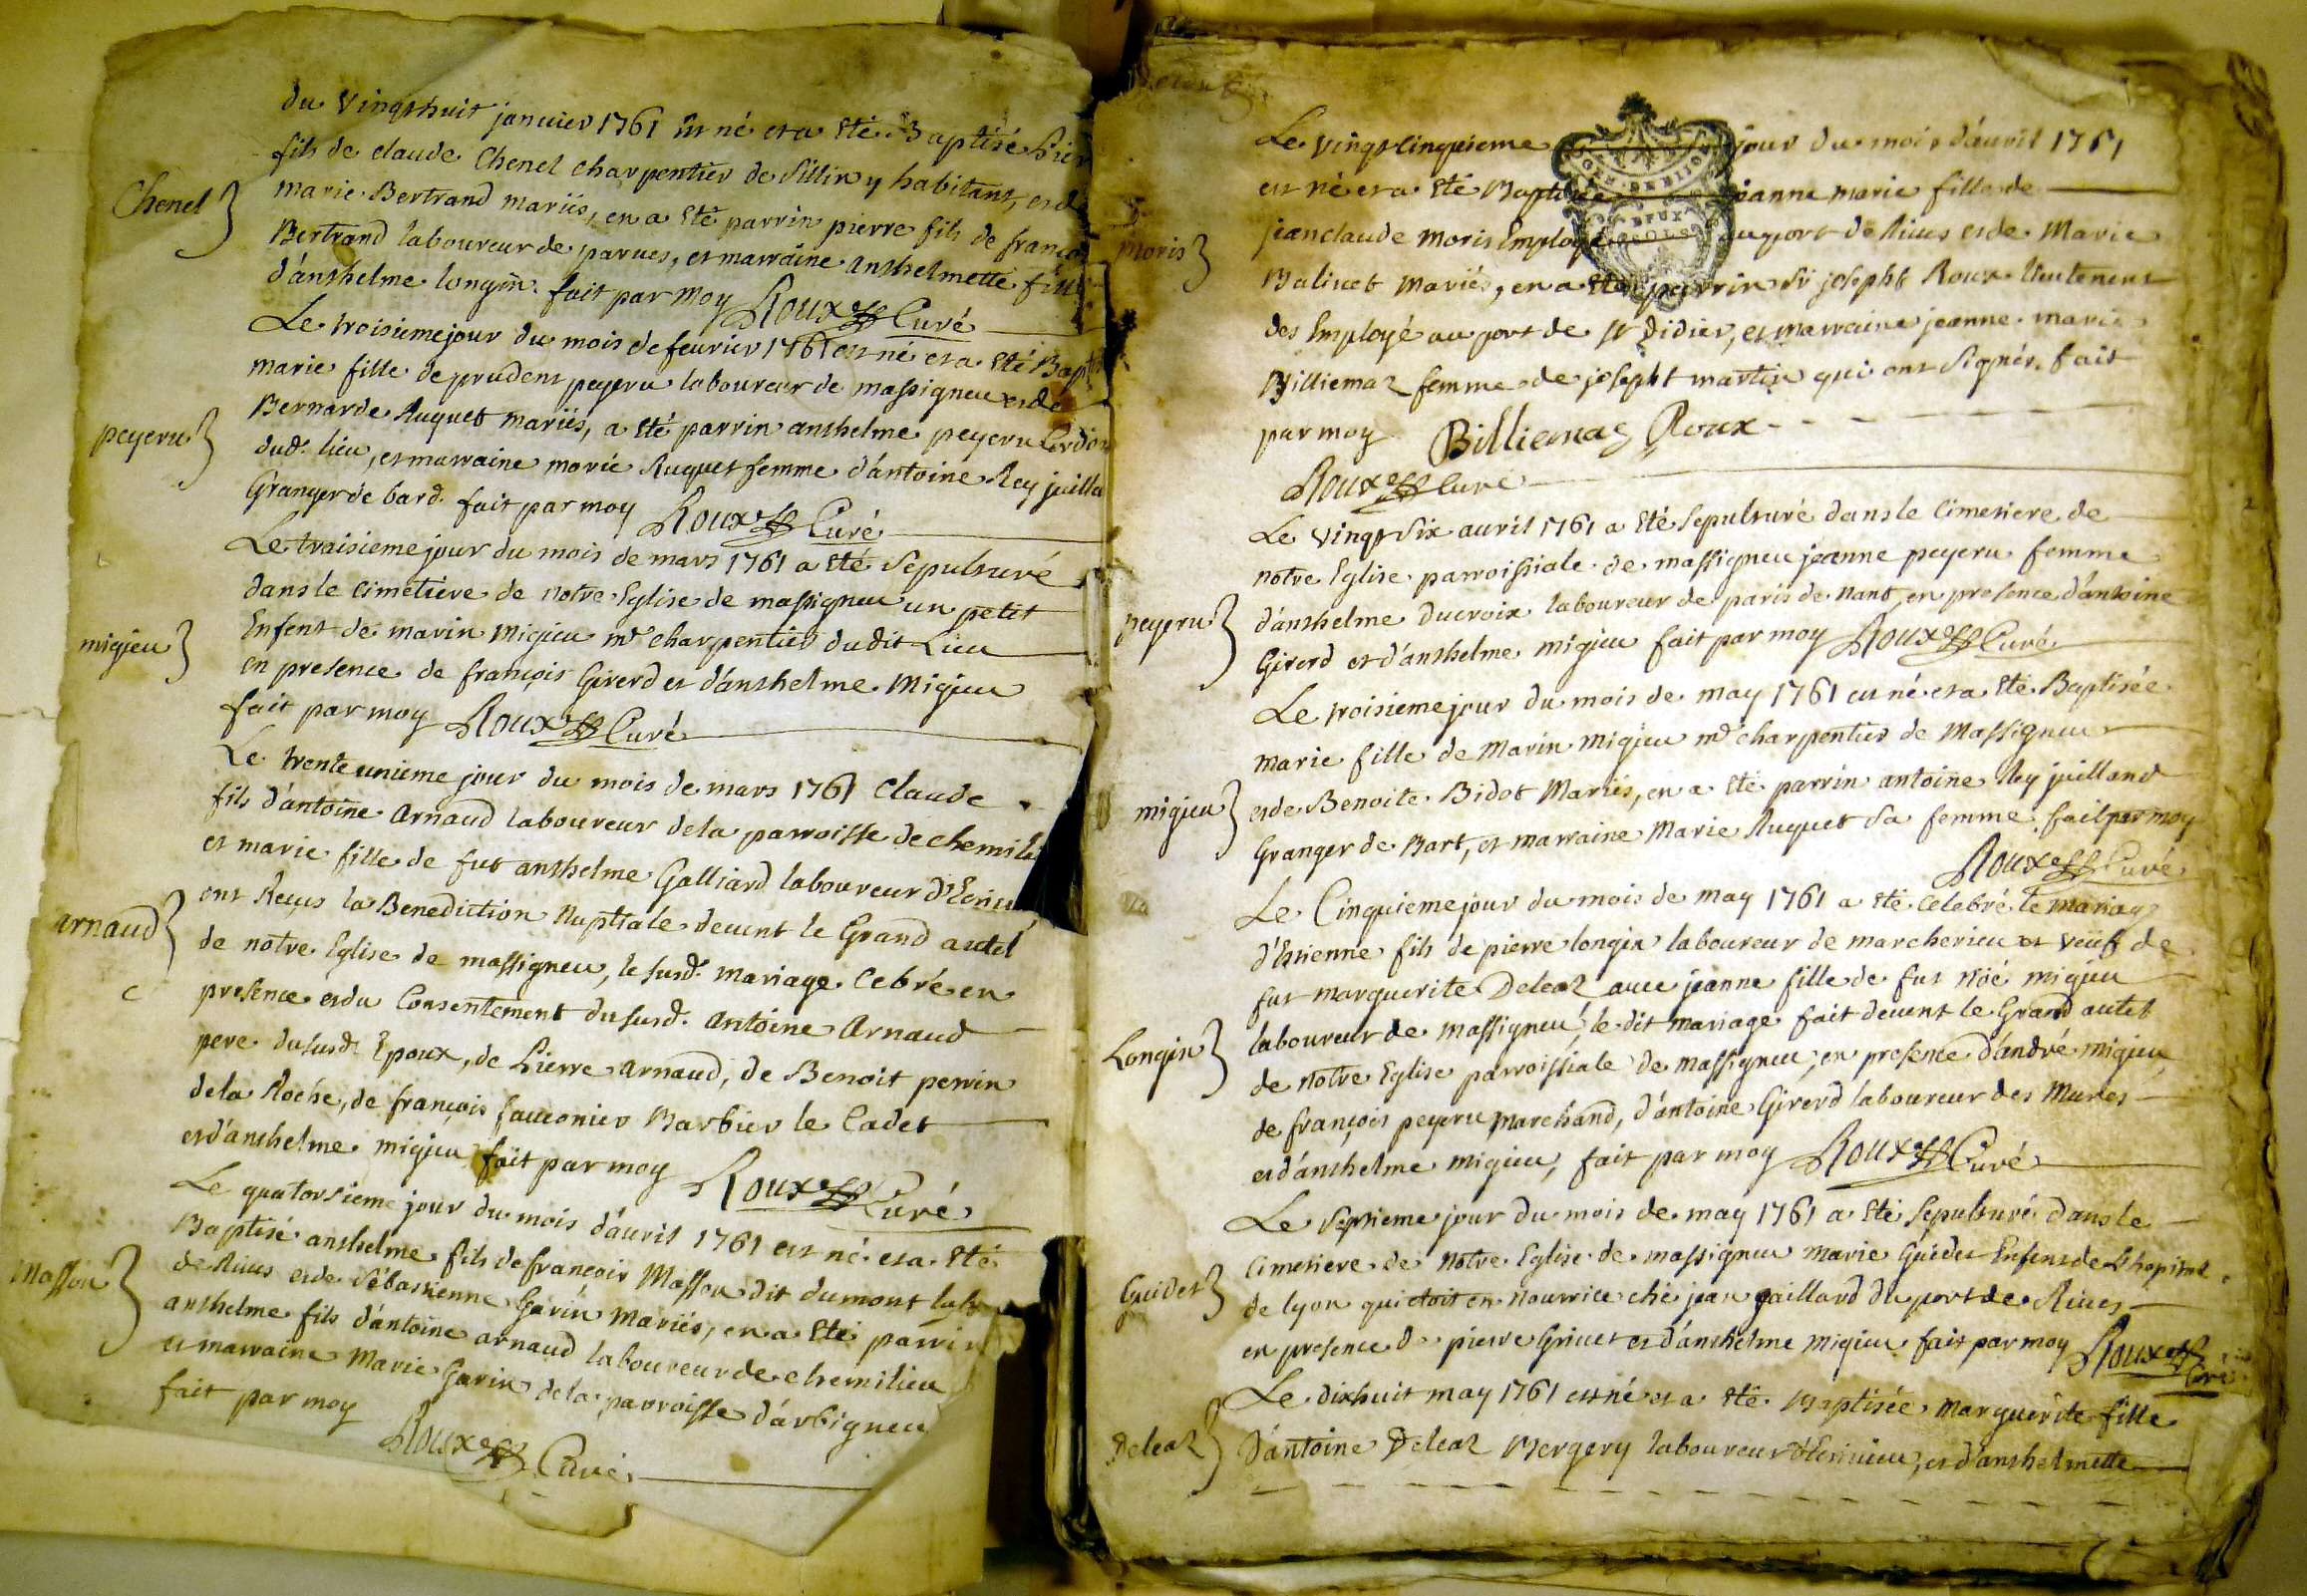 du vingthuit januier 1761 est né et a eté Baptisé
Chenel
fils de claude Chenel charpentier de Sillin y habitant, et de
marie Bertrand mariés, en a eté parrin pierre fils de françois
Bertrand laboureur de parues, et marraine anthelmette fille
d'anthelme longin. fait par moy Roux Curé
Le troisieme jour du mois de feurier 1761 est né et a eté Bapt
peyeru
marie fille de prudent peyeru laboureur de massigneu et de
Bernarde Ruquet mariés, a eté parrin anthelme peyeru
dud. lieu, et marraine marie Ruquet femme d'antoine Rey juilla
Granger de bard. fait par moy Roux Curé
Le troisieme jour du mois de mars 1761 a eté sepulturé
dans le cimetiere de notre Eglise de massigneu un petit
migieu
Enfent de marin migieu md charpentier dudit Lieu
en presence de françois Girerd et d'anthelme Migieu
fait par moy Roux Curé
Le trente unieme jour du mois de mars 1761 Claude
fils d'antoine Arnaud laboureur de la parroisse de chemili
et marie fille de fut anthelme Galliard laboureur
arnaud
ont Reçus la Benediction Nuptiale deuent le Grand autel
de notre Eglise de massigneu, le susd. mariage Cebré en
presence et du Consentement du susd. Antoine Arnaud
pere du susd. Epoux, de Pierre Arnaud, de Benoit perrin
de la Roche, de françois fauconier Barbier le Cadet
et d'anthelme migieu fait par moy Roux Curé
Le quatorsieme jour du mois d'auril 1761 est né et a eté
Masson
Baptisé anthelme fils de françois Masson dit dumont
de Riues et de Sébastienne Garin Mariés, en a eté parrin
anthelme fils d'antoine arnaud laboureur de chemilieu
et marraine Marie Garin de la parroisse d'arbigneu
fait par moy
Roux Curé
Le vingt cinquieme jour du mois d'auril 1761
est né et a eté Baptisée jeanne marie fille de
Moris
jean claude moris Employé au port de Riues et de Marie
Baliuet mariés, en a eté parrin Sr josepht Roux lieutenent
des Employé au port de St Didier, et marraine jeanne marie
Billiemaz femme de josepht martin qui ont signés. fait
par moy Billiemaz Roux
Roux Curé
Le vingt Six auril 1761 a eté Sepulturé dans le Cimetiere de
notre Eglise parroissiale de massigneu jeanne peyeru femme
peyeru
d'anthelme Ducroix laboureur de paris de Nant, en presence d'antoine
Girerd et d'anthelme migieu fait par moy Roux Curé
Le troisieme jour du mois de may 1761 est né et a eté Baptisée
marie fille de Marin Migieu md charpentier de Massigneu
migieu
et de Benoite Bidot Mariés, en a eté parrin antoine Rey juilland
Granger de Bart, et marraine Marie Ruquet sa femme. fait par moy
Roux Curé
Le Cinquieme jour du mois de may 1761 a eté Celebré le mariage
d'Etienne fils de pierre longin laboureur de marcherieu et veüf de
fut marguerite Deleaz auec jeanne fille de fut Noé migieu
Longin
laboureur de massigneu, le dit mariage fait deuent le Grand autel
de notre Eglise parroissiale de massigneu, en presence d'andré migieu
de françois peyeru marchand, d'antoine Girerd laboureur des Mures
et d'anthelme migieu, fait par moy Roux Curé
Le Septieme jour du mois de may 1761 a eté Sepulturé dans le
Guidet
Cimetiere de notre Eglise de massigneu marie Guidet Enfent de Lhopital
de lyon qui etoit en nourrice ché jean gaillard du port de Riues
en presence de pierre Griuet et d'anthelme migieu fait par moy Roux Curé
Le dixhuit may 1761 est né et a eté Baptisée Marguerite fille
Deleaz
D'antoine Deleaz Bergery laboureur, et d'anthelmette